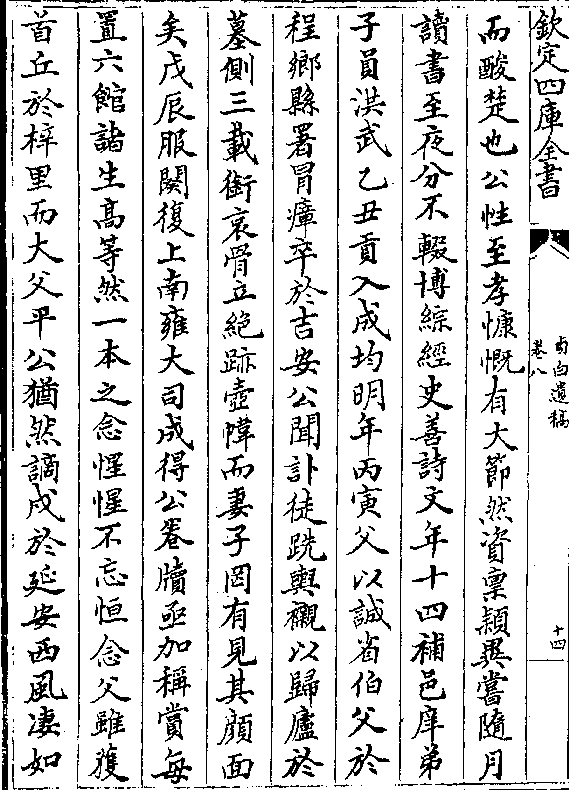 欽定四庫全書
卷八
十四
而酸楚也公性至孝慷慨有大節然資禀穎異嘗隨月
讀書至夜分不輟博綜經史善詩文年十四補邑庠弟
子員洪武乙丑貢入成均明年丙寅父以誠省伯父於
程鄉縣署冒瘴卒於吉安公聞訃徒跣輿櫬以歸廬於
墓側三載銜哀骨立絶跡壺幃而妻子罔有見其顔面
矣戊辰服闋復上南雍大司成得公卷牘亟加稱賞每
置六館諸生高等然一本之念惺惺不忘恒念父雖獲
首丘於梓里而大父平公猶然謫戍於延安西風凄如